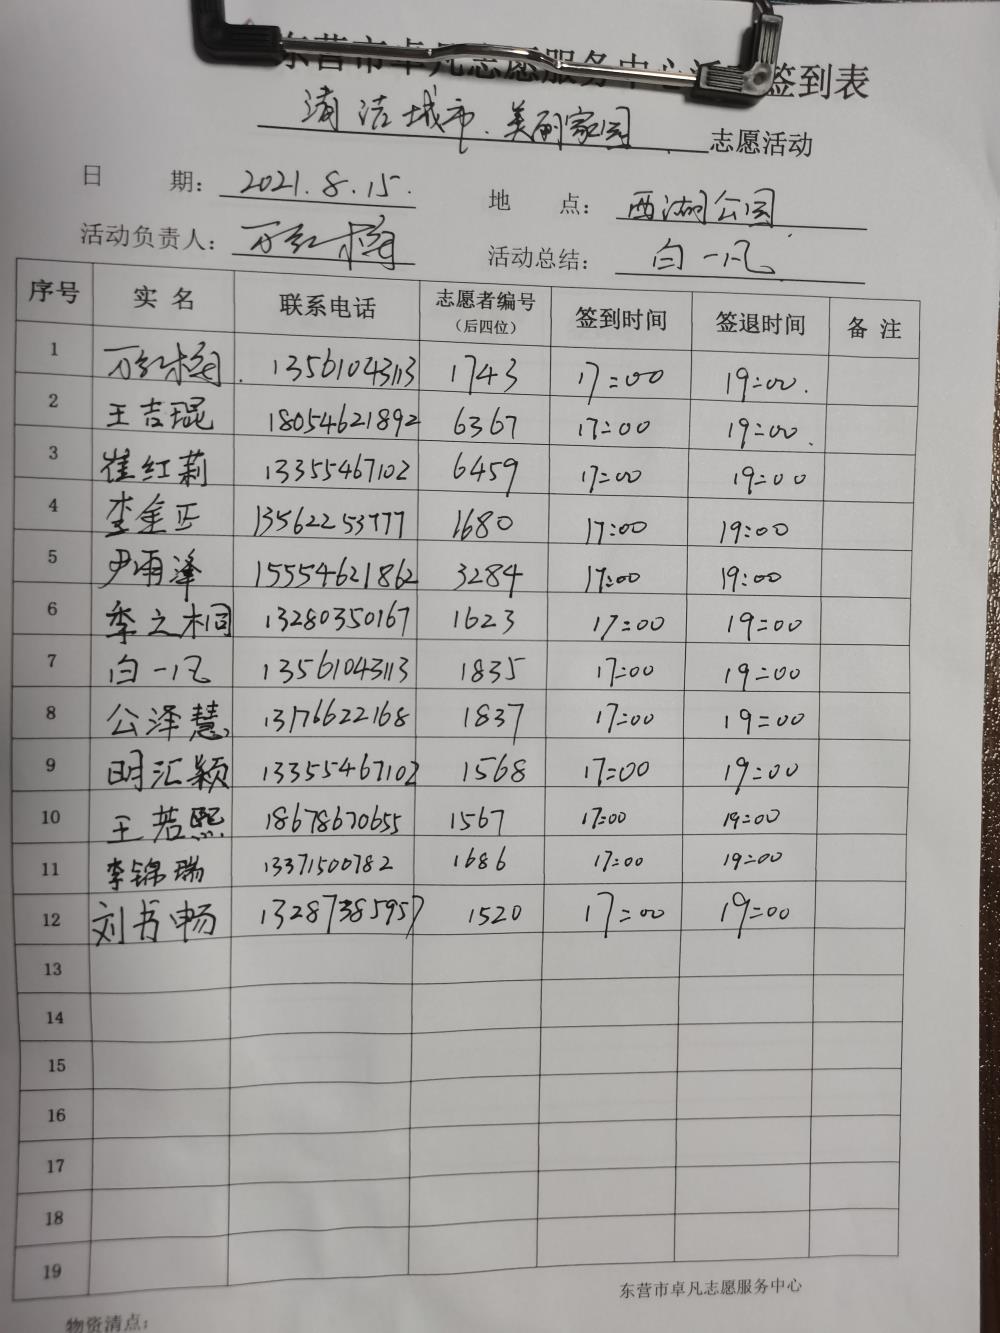 东营市卓凡志愿服务中心活动签到表
清洁城市、美丽家园 志愿活动
日 期: 2021.8.15. 地 点: 西湖公园
活动负责人: 万红梅 活动总结: 白一凡
序号 实名 联系电话 志愿者编号(后四位) 签到时间 签退时间 备注
1 万红梅. 13561043113 1743 17:00 19:00.
2 王吉琨 18054621892 6367 17:00 19:00.
3 崔红莉 13355467102 6459 17:00 19:00
4 李金正 13562253777 1680 17:00 19:00
5 尹雨泽 15554621862 3284 17:00 19:00
6 季之桐 13280350167 1623 17:00 19:00
7 白一凡 13561043113 1835 17:00 19:00
8 公泽慧 13176622168 1837 17:00 19:00
9 明汇颖 13355467102 1568 17:00 19:00
10 王若熙 18678670655 1567 17:00 19:00
11 李锦瑞 13371500782 1686 17:00 19:00
12 刘书畅 13287385957 1520 17:00 19:00
13
14
15
16
17
18
19
东营市卓凡志愿服务中心
物资清点: